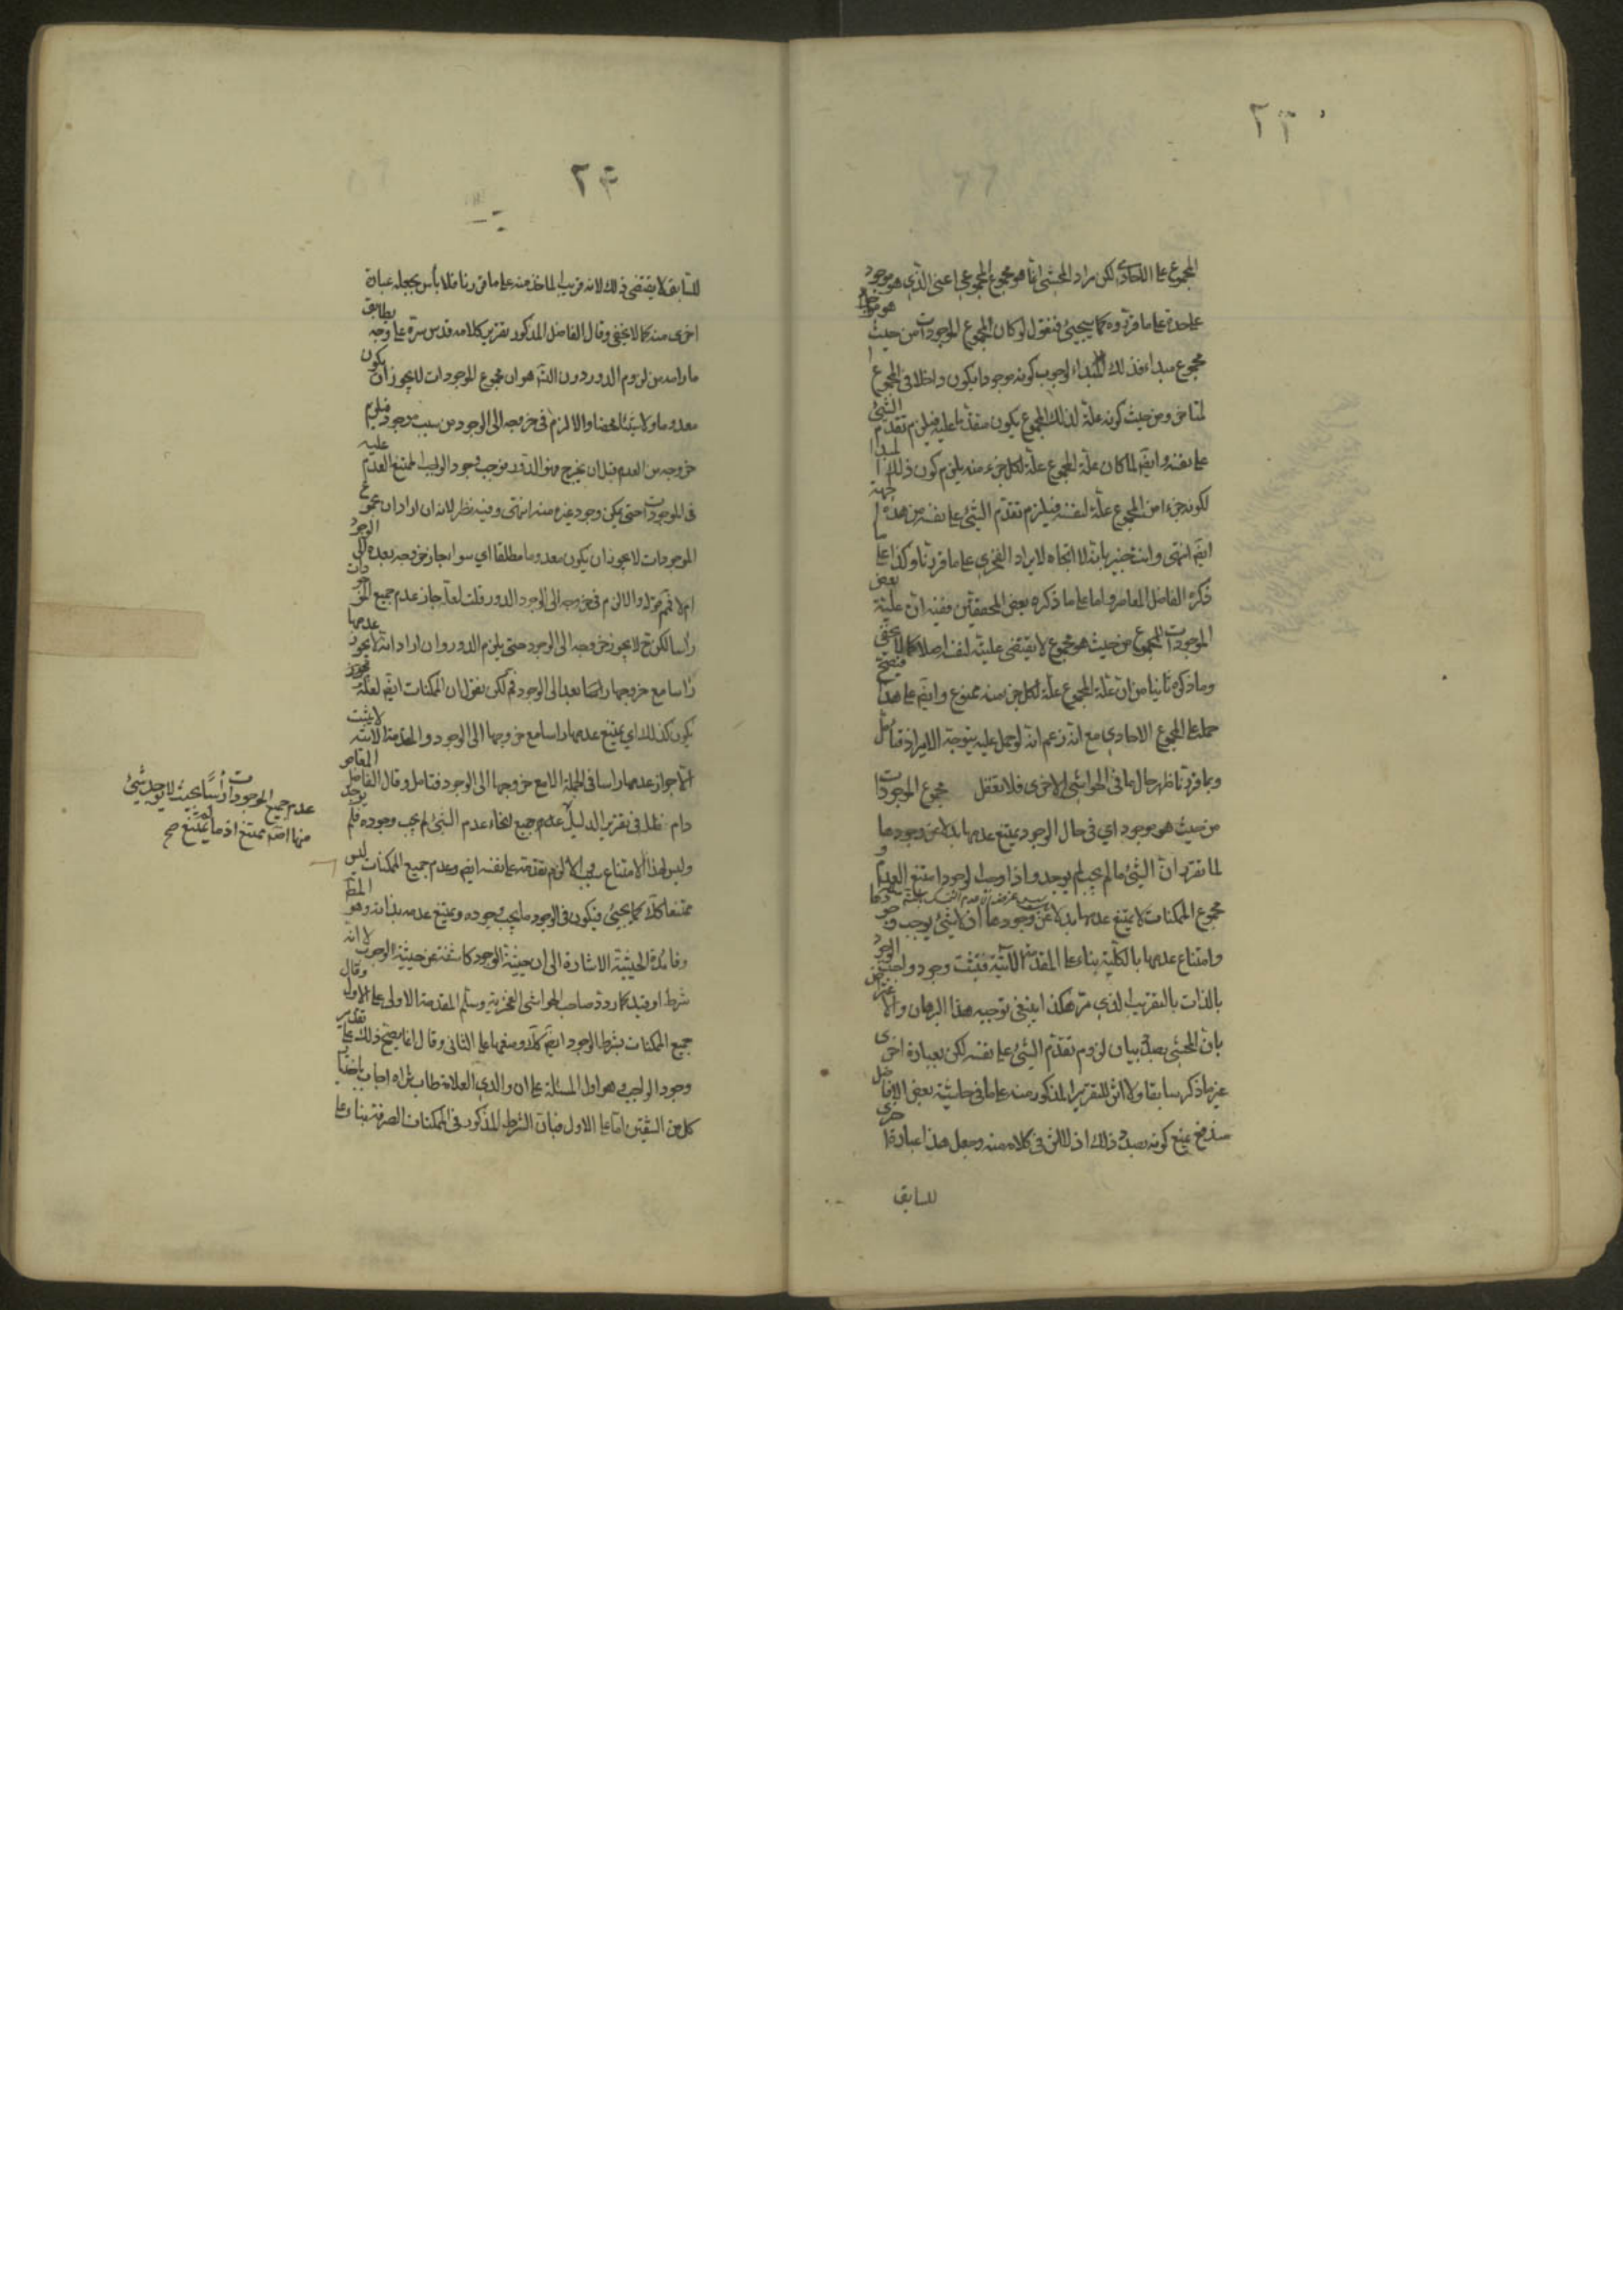 ٢٢
المجموع على الآحادى لكن مراد المحشى انما هو مجموع المجموعى اعنى الذى هو موجود
عليحدة على ما قرروه كما سيجئ فنقول لو كان المجموع الموجودات من حيث هو موجود
مجموع مبداء فذلك المبداء لوجوب كونه موجودا يكون داخلا فى المجموع
لتاخر ومن حيث كونه علة لذلك المجموع يكون متقدما عليه فيلزم تقدم الشئ
على نفسه وايضا لما كان علة المجموع علة لكل جزء منه يلزم كون ذلك المبدا
لكونه جزءا من المجموع علة لنفسه فيلزم تقدم الشئ على نفسه من هذه الجهة
ايضا انتهى وانت خبير بانه لا اتجاه لايراد الفخرى على ما قررنا وكذا على ما
ذكره الفاضل المعاصر واما على ما ذكره بعض المحققين ففيه ان علية بعض
الموجودات للمجموع من حيث هو مجموع لا يقتضى عليته لنفسه اصلا كما لا يخفى
وما ذكره ثانيا من ان علة المجموع علة لكل جزء منه ممنوع وايضا على هذا
حمله على المجموع الاحادى مع انه زعم انه لو حمل عليه يتوجه الايراد فتأمل
وبما قررنا ظهر حال ما فى الحواشى الاخرى فلا تغفل مجموع الموجودات
من حيث هو موجود اى فى حال الوجود يمتنع عدمها بدلا عن وجودها
لما تقرر ان الشئ ما لم يجب لم يوجد واذا وجب الوجود امتنع العدم و
مجموع الممكنات لا يمتنع عدمها بدلا عن وجودها اذ لا شئ يوجب وجودها
وامتناع عدمها بالكلية بناء على المقدمة الآتية فثبت وجود واجب الوجود
بالذات بالتقريب الذى مر هكذا ينبغى توجيه هذا البرهان والاعتراض
بان المحشى بصدد بيان لزوم تقدم الشئ على نفسه لكن بعبارة اخرى
غير ما ذكر سابقا ولا اثر للتقرير المذكور منه على ما فى حاشية بعض الافاضل
مندفع بمنع كونه بصدد ذلك اذ لا اثر فى كلامه منه وجعل هذا عبارة اخرى
للسابق
للسابق لا يقتضى ذلك لانه قريب الماخذ منه على ما قررنا فلا بأس بجعله عبارة
اخرى منه كما لا يخفى وقال الفاضل المذكور تقرير كلامه قدس سره على وجه يطابق
ما رامه من لزوم الدور دون التسلسل هو ان مجموع الموجودات لا يجوز ان يكون
معدوما ولا شيئا محضا والا لزم فى خروجه الى الوجود من سبب موجود فيلزم
خروجه من العدم قبل ان يخرج وهو الدور فوجب وجود الواجب الممتنع العدم عليه
فى الموجودات حتى يمكن وجود غيره منه انتهى وفيه نظر لانه ان اراد ان مجموع
الموجودات لا يجوز ان يكون معدوما مطلقا اى سواء جاز خروجه بعده الى الوجود
ام لا فممنوع قوله والا لزم فى خروجه الى الوجود الدور قلت لعله جاز عدم جميع الموجودات
رأسا لكن ح لا يجوز خروجه الى الوجود حتى يلزم الدور وان اراد انه لا يجوز عدمها
رأسا مع خروجها بعد الى الوجود فم لكن نقول ان الممكنات ايضا لعله يجوز
يكون كذلك اى يمتنع عدمها رأسا مع خروجها الى الوجود والمقدمة الآتية لا يثبت
الا جواز عدمها رأسا فى الجملة لا مع خروجها الى الوجود فتأمل وقال الفاضل المعاصر
دام ظله فى تقرير الدليل عدم جميع انحاء عدم الشئ لم يجب وجوده فلم يوجد
وليس لهذا الامتناع سبب والا لزم تقدمه على نفسه ايضا وعدم جميع الممكنات ليس
ممتنعا كذلك كما يجئ فيكون فى الوجود ما يجب وجوده ويمتنع عدمه بذاته وهو المط
وفائدة الحيثية الاشارة الى ان حيثية الوجود كاشفة عن حيثية الوجوب لا انه
شرط او قيد كما ردد صاحب الحواشى الفخرية وسلم المقدمة الاولى على الاول وقال
جميع الممكنات بشرط الوجود ايضا كذلك ومنعها على الثانى وقال انما يصح ذلك على تقدير
وجود الواجب وهو اول المسئلة على ان والدى العلامة طاب ثراه اجاب باختيار
كل من الشقين اما على الاول فبان الشرط المذكور فى الممكنات الصرفة بناء على
عدم جميع الموجودات رأسا بحيث لا يوجد شئ
منها اصلا ممتنع اذ ما لم يمتنع صح